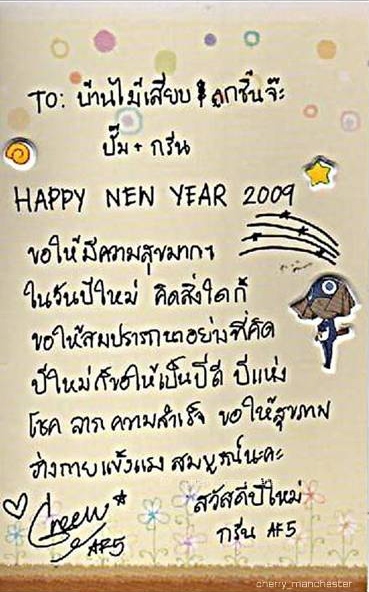 TO: บ้านไม้เสียบลูกชิ้นจ๊ะ
ปั๊ม + กรีน
HAPPY NEW YEAR 2009
ขอให้มีความสุขมากๆ
ในวันปีใหม่ คิดสิ่งใดก็
ขอให้สมปรารถนาอย่างที่คิด
ปีใหม่ก็ขอให้เป็นปีดี ปีแห่ง
โชค ลาภ ความสำเร็จ ขอให้สุขภาพ
ร่างกายแข็งแรง สมบูรณ์นะคะ
สวัสดีปีใหม่
Green AF5
กรีน AF5
cherry_manchester